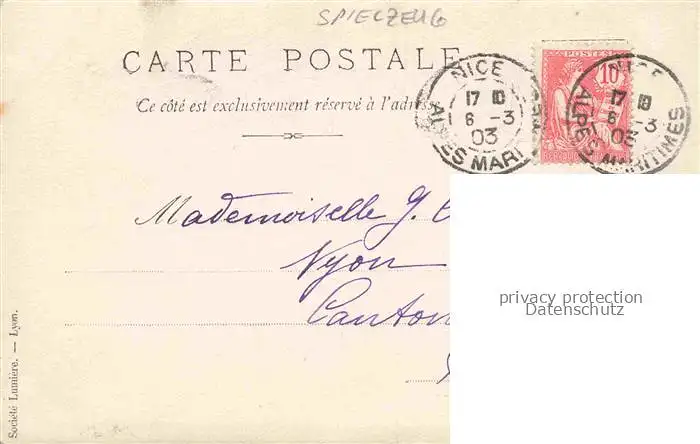 SPIELZEUG
CARTE POSTALE
Ce côté est exclusivement réservé à l'adresse
NICE
17 10
6 -3
03
ALPES MARI
POSTES
10
17 10
6 -3
03
ALPES MARITIMES
Mademoiselle G.
Nyon
Canton
privacy protection
Datenschutz
Société Lumière. — Lyon.